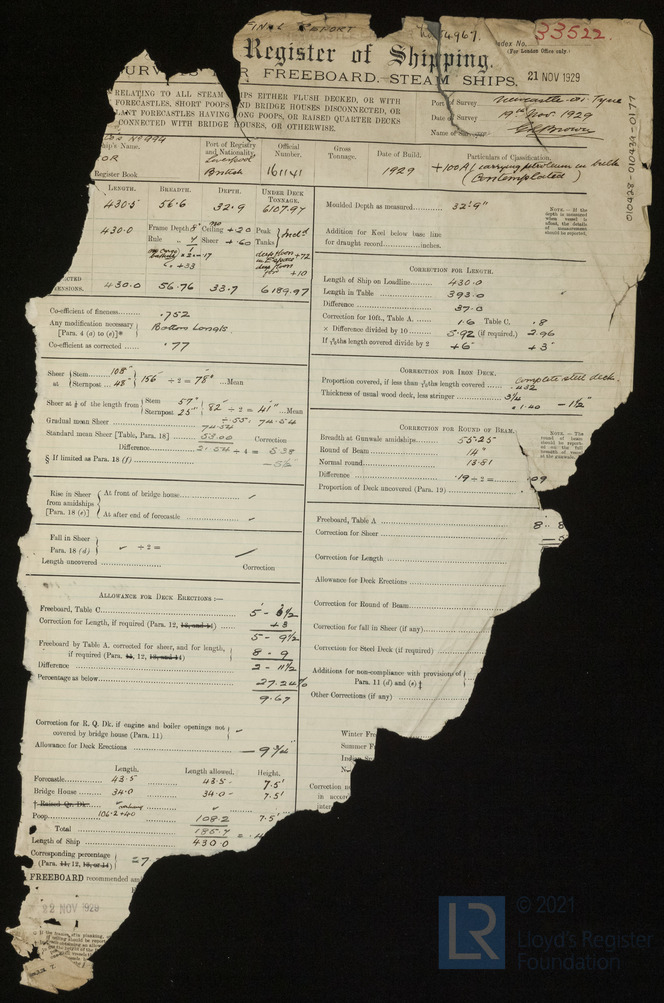 FINAL REPORT
No. 54967.
Index No. 33522.
(For London Office only.)
Register of Shipping.
FREEBOARD. STEAM SHIPS.
21 NOV 1929
RELATING TO ALL STEAM SHIPS EITHER FLUSH DECKED, OR WITH
FORECASTLES, SHORT POOPS AND BRIDGE HOUSES DISCONNECTED, OR
FORECASTLES HAVING LONG POOPS, OR RAISED QUARTER DECKS
CONNECTED WITH BRIDGE HOUSES, OR OTHERWISE.
Port of Survey Newcastle-on-Tyne
Date of Survey 19th Nov. 1929
Name of Surveyor
010428-010439-0177
No 994
Ship's Name. Port of Registry and Nationality. Official Number. Gross Tonnage. Date of Build. Particulars of Classification.
OR Liverpool British 161141 1929 +100A1 carrying petroleum in bulk
(Contemplated)
Register Book
LENGTH. BREADTH. DEPTH. UNDER DECK TONNAGE.
430.5 56.6 32.9 6107.97
430.0 Frame Depth Ceiling +20 Peak
Rule Sheer +.60 Tanks
+72
+.33 +10
430.0 56.76 33.7 6189.97
Moulded Depth as measured 32'.9"
Addition for Keel below base line
for draught record inches.
NOTE.—If the depth is measured when vessel is afloat, the details of measurement should be reported.
Co-efficient of fineness .752
Any modification necessary
[Para. 4 (a) to (e)]* Bottom Longls.
Co-efficient as corrected .77
CORRECTION FOR LENGTH.
Length of Ship on Loadline 430.0
Length in Table 393.0
Difference 37.0
Correction for 10ft., Table A. 1.6 Table C. .8
× Difference divided by 10 5.92 (if required.) 2.96
If 6/10ths length covered divide by 2 +6" +3"
Sheer at Stem 108"
Sternpost 48" 156 ÷2= 78" Mean
Sheer at 1/8 of the length from Stem 57"
Sternpost 25" 82" ÷2= 41" Mean
Gradual mean Sheer ÷.55, 74.54
74.54
Standard mean Sheer [Table, Para. 18] 53.00 Correction
Difference 21.54 ÷4= 5.38
§ If limited as Para. 18 (f) -5½"
CORRECTION FOR IRON DECK.
Proportion covered, if less than 7/10ths length covered complete steel deck.
.432
Thickness of usual wood deck, less stringer 3¾
×.40 -1½"
CORRECTION FOR ROUND OF BEAM.
Breadth at Gunwale amidships 55.25
Round of Beam 14"
Normal round 13.81
Difference .19÷2= .09
Proportion of Deck uncovered (Para. 19)
Rise in Sheer from amidships [Para. 18 (e)] At front of bridge house
At after end of forecastle
Fall in Sheer
Para. 18 (d) ÷2=
Length uncovered Correction
Freeboard, Table A 8.. 8
Correction for Sheer
Correction for Length
Allowance for Deck Erections
Correction for Round of Beam
Correction for fall in Sheer (if any)
Correction for Steel Deck (if required)
Additions for non-compliance with provisions of
Para. 11 (d) and (e)‡
Other Corrections (if any)
Winter Fre
Summer F
Indian Su
Correction
in accor
inter
ALLOWANCE FOR DECK ERECTIONS:—
Freeboard, Table C 5'-6½
Correction for Length, if required (Para. 12, 13, and 14) +3
5-9½
Freeboard by Table A. corrected for sheer, and for length,
if required (Para. 11, 12, 13, and 14) 8-9
Difference 2-11½
Percentage as below 27.24%
9.67
Correction for R. Q. Dk. if engine and boiler openings not
covered by bridge house (Para. 11)
Allowance for Deck Erections -9¾"
Length. Length allowed. Height.
Forecastle 43.5 43.5 7.5'
Bridge House 34.0 34.0 7.5'
† Raised Qr. Dk.
Poop 106.2+40 108.2 7.5'
Total 185.7
Length of Ship 430.0
Corresponding percentage
(Para. 11, 12, 13, or 14)
FREEBOARD recommended am
22 NOV 1929
LR
© 2021
Lloyd's Register
Foundation